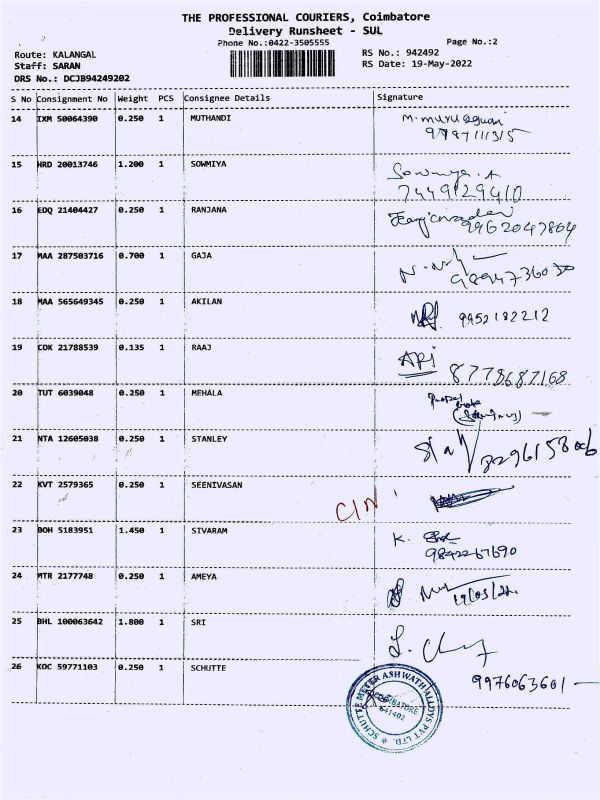 THE PROFESSIONAL COURIERS, Coimbatore
Delivery Runsheet - SUL
Phone No.:0422-3505555 Page No.:2
Route: KALANGAL RS No.: 942492
Staff: SARAN RS Date: 19-May-2022
DRS No.: DCJB94249202
S No Consignment No Weight PCS Consignee Details Signature
14 IXM 50064390 0.250 1 MUTHANDI
15 HRD 20013746 1.200 1 SOWMIYA Sowmya.A
7449129410
16 EDQ 21404427 0.250 1 RANJANA
9962047864
17 MAA 287503716 0.700 1 GAJA
18 MAA 565649345 0.250 1 AKILAN 9952182212
19 COK 21788539 0.135 1 RAAJ ARi
8778687168
20 TUT 6039048 0.250 1 MEHALA
21 NTA 12605038 0.250 1 STANLEY
22 KVT 2579365 0.250 1 SEENIVASAN
23 BOH 5183951 1.450 1 SIVARAM K.
9842267690
24 MTR 2177748 0.250 1 AMEYA
19/05/22
25 BHL 100063642 1.800 1 SRI
26 KOC 59771103 0.250 1 SCHUTTE 9976063601
SCHUTTE METER ASHWATH ALLOYS PVT LTD.
COIMBATORE
641402